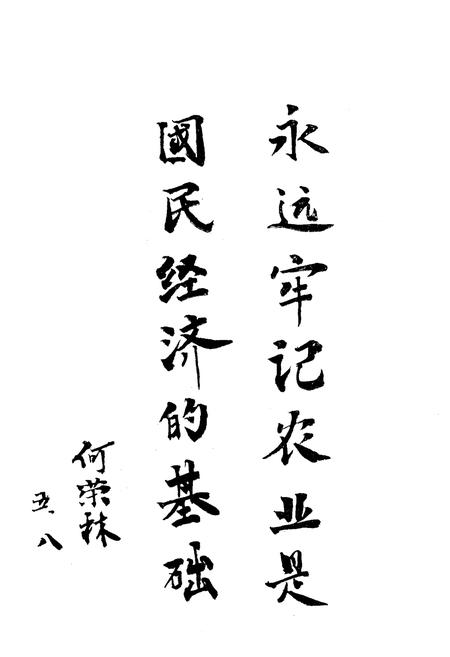 永远牢记农业是
國民经济的基础
何荣林
五、八